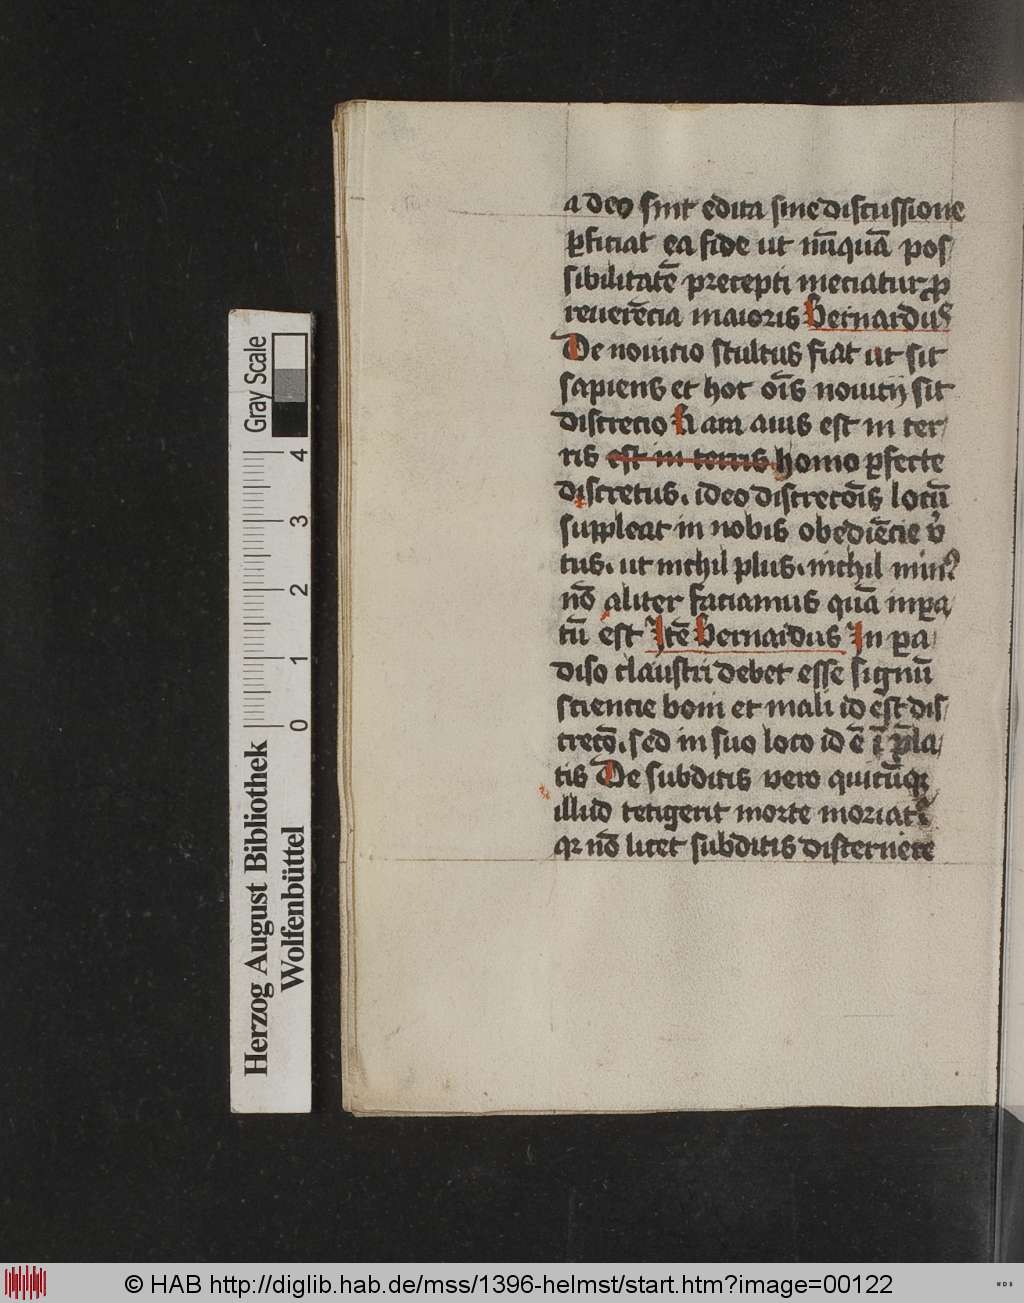 a deo sint edita sine discussione
ꝑficiat ea fide ut nūquā pos/
sibilitatē precepti meciatur ꝓ
reuerēcia maioris Bernardus
De nouicio stultus fiat ut sit
sapiens et hoc oīs nouicij sit
discrecio Nam auis est in ter/
ris est in terris homo ꝑfecte
discretus. ideo discrecōis locū
suppleat in nobis obediēcie v̓
tus. ut nichil plus. nichil minꝰ
nō aliter faciamus quā inꝑa/
tū est Itē Bernardus In ꝑa/
diso claustri debet esse signū
sciencie boni et mali id est dis/
crecō. sed in suo loco id ē ī p̄la/
tis De subditis vero quicūqꝫ
illud tetigerit morte moriat᷑
qꝛ nō licet subditis discernere
Herzog August Bibliothek
Wolfenbüttel
0 1 2 3 4
Gray Scale
© HAB http://diglib.hab.de/mss/1396-helmst/start.htm?image=00122